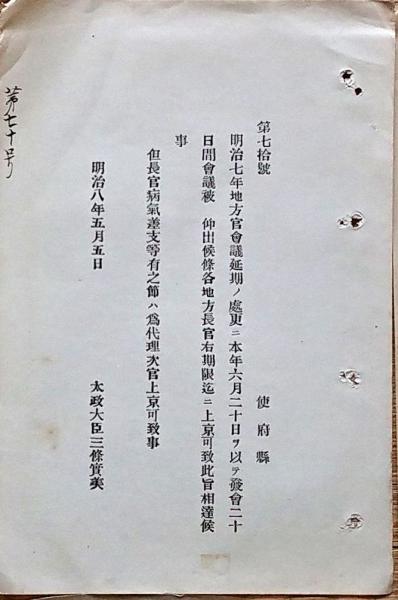 第七拾號
使府縣
明治七年地方官會議延期ノ處更ニ本年六月二十日ヲ以テ發會二十
日間會議被 仰出候條各地方長官右期限迄ニ上京可致此旨相達候
事
但長官病氣差支等有之節ハ爲代理次官上京可致事
明治八年五月五日
太政大臣三條實美
第七十号